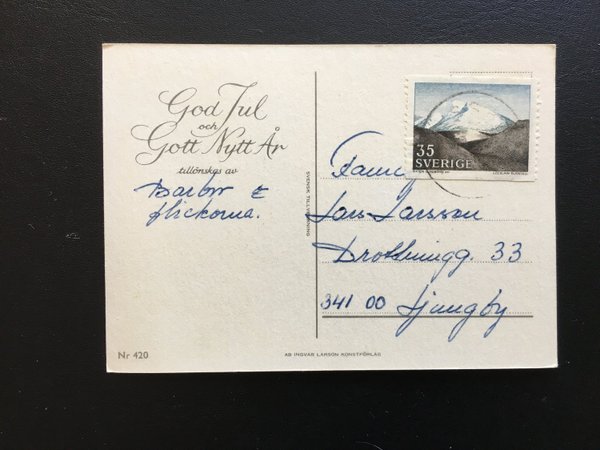 God Jul
och
Gott Nytt År
tillönskas av
&
flickorna.
SVENSK TILLVERKNING
35
SVERIGE
Fam.
Lars Larsson
Drottningg. 33
341 00 Ljungby
Nr 420
AB INGVAR LARSON KONSTFÖRLAG